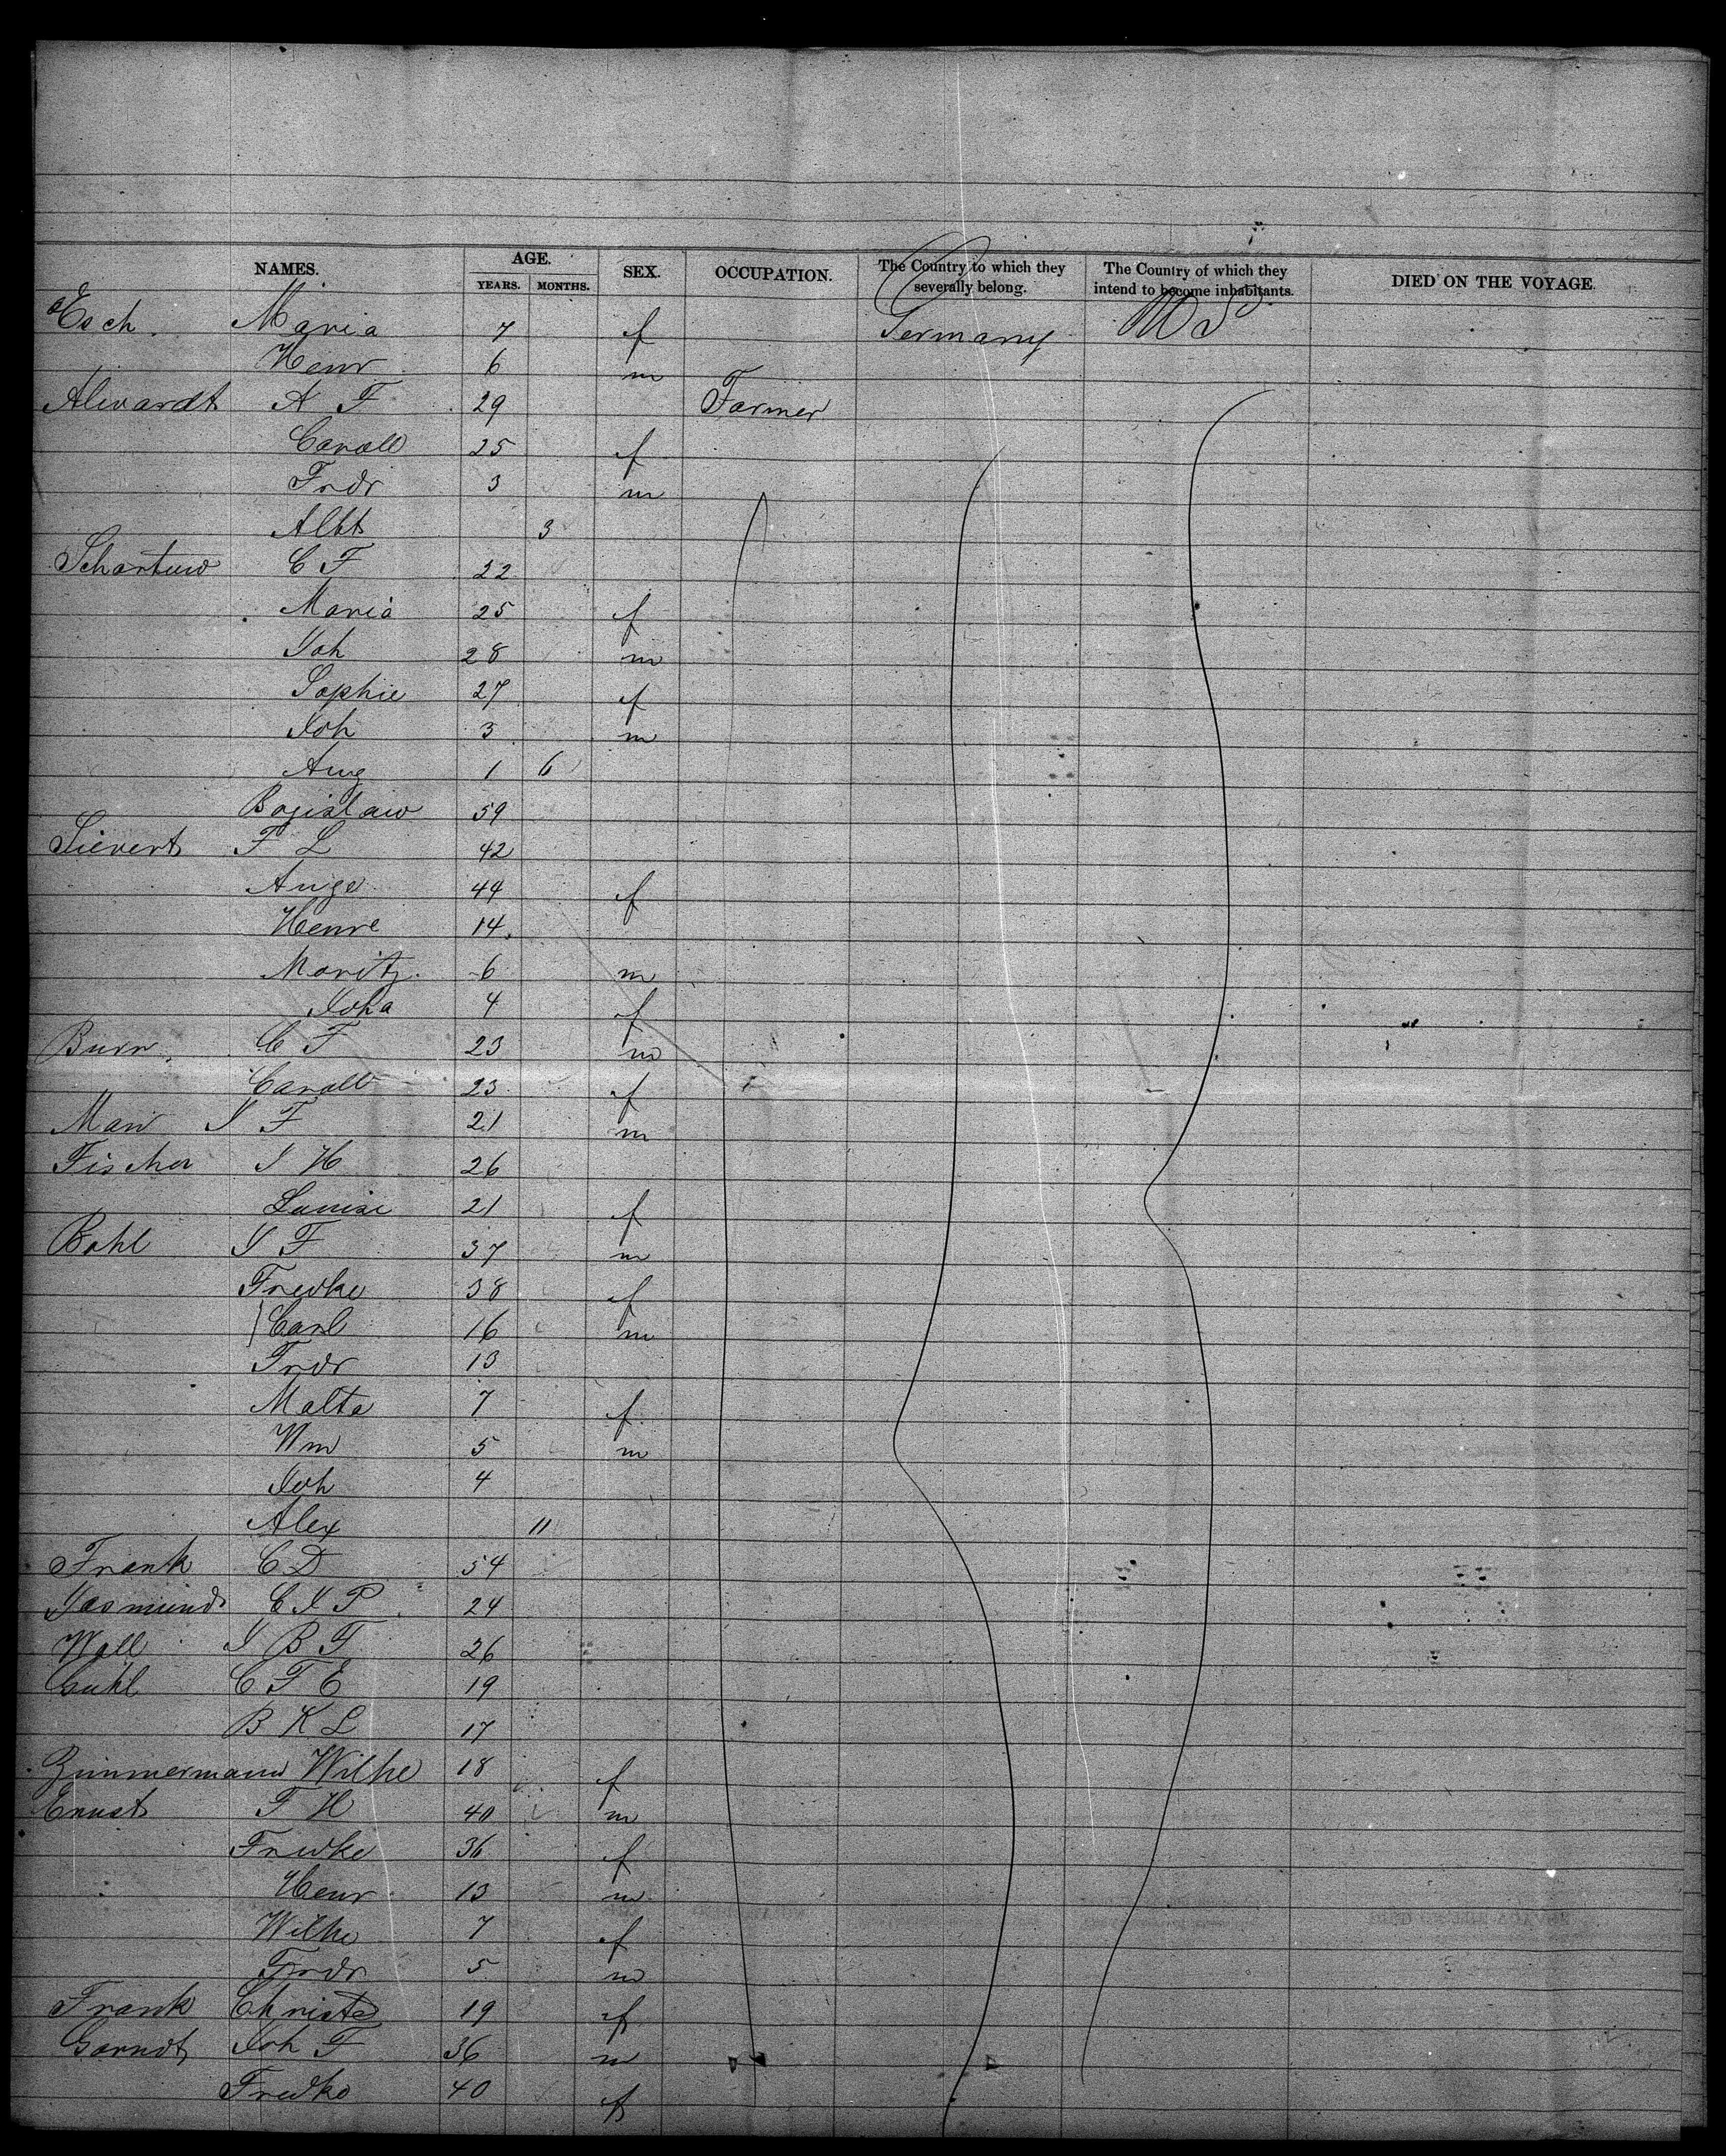 NAMES. AGE. YEARS. MONTHS. SEX. OCCUPATION. The Country to which they severally belong. The Country of which they intend to become inhabitants. DIED ON THE VOYAGE.
Esch Maria 7 f Germany US
Henr 6 m
Alwardt A F 29 Farmer
Caroll 25 f
Frdr 3 m
Albt 3
C F 22
Maria 25 f
Joh 28 m
Sophie 27 f
Joh 3 m
Aug 1 6
Bogislaw 59
Sievert F L 42
Auge 44 f
Henre 14
Moritz 6 m
Joha 4 f
Burr C F 23 m
Caroll 23 f
J F 21 m
Fischer J H 26
Louise 21 f
Bohl J F 37 m
Fredke 38 f
Carl 16 m
Frdr 13
Malta 7 f
Wm 5 m
Joh 4
Alex 11
Frank C D 54
Jasmund C J P 24
Wall J B F 26
Guhl C F E 19
B K L 17
Zimmermann Wilhe 18 f
Ernst F H 40 m
Fredke 36 f
Henr 13 m
Wilhe 7 f
Frdr 5 m
Frank Christe 19 f
Joh F 36 m
Fredke 40 f